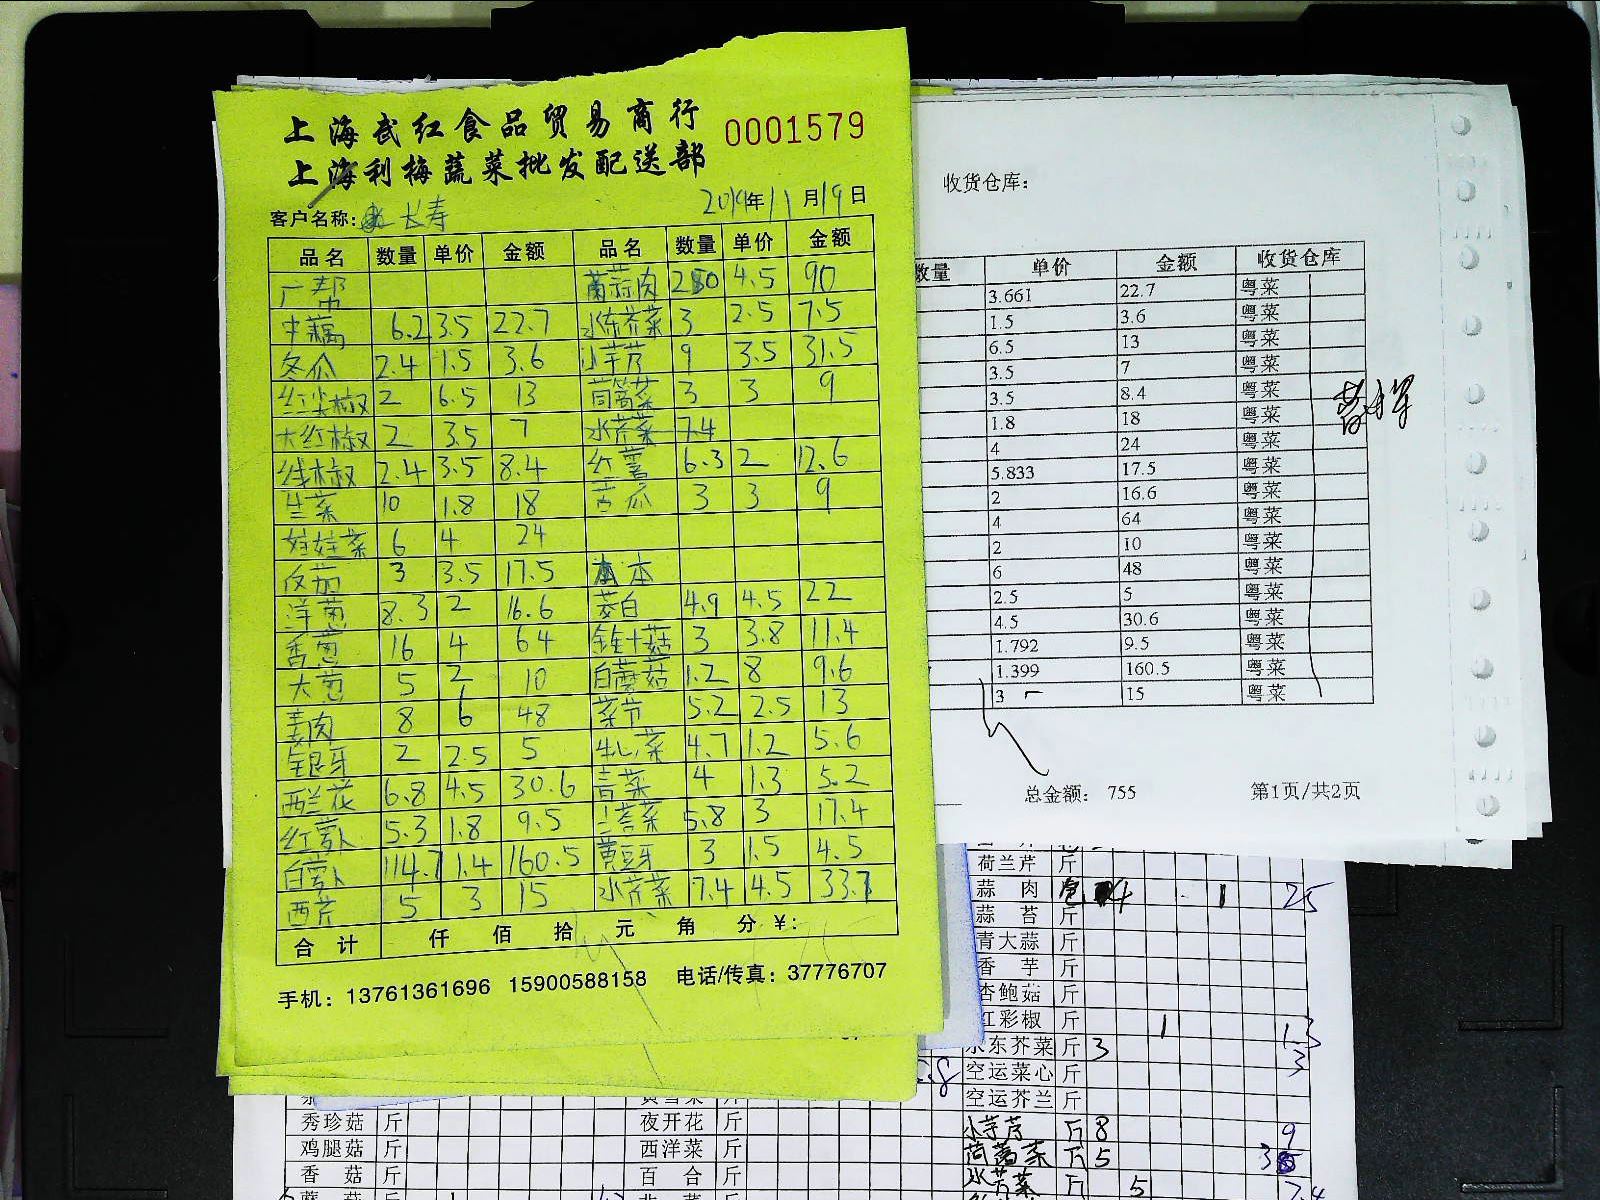 上海武红食品贸易商行
上海利梅蔬菜批发配送部
0001579
客户名称: 长寿 2019年11月19日
品名 数量 单价 金额 品名 数量 单价 金额
广帮 蒜肉 4.5 90
中藕 6.2 3.5 22.7 水东芥菜 3 2.5 7.5
冬瓜 2.4 1.5 3.6 小芋芳 9 3.5 31.5
红尖椒 2 6.5 13 茼蒿菜 3 3 9
大红椒 2 3.5 7 水芹菜 7.4
线椒 2.4 3.5 8.4 红薯 6.3 2 12.6
生菜 10 1.8 18 苦瓜 3 3 9
娃娃菜 6 4 24
茄 3 3.5 17.5 本
洋葱 8.3 2 16.6 茭白 4.9 4.5 22
香葱 16 4 64 金针菇 3 3.8 11.4
大葱 5 2 10 白蘑菇 1.2 8 9.6
姜肉 8 6 48 5.2 2.5 13
银牙 2 2.5 5 菜 4.7 1.2 5.6
西兰花 6.8 4.5 30.6 青菜 4 1.3 5.2
红萝卜 5.3 1.8 9.5 5.8 3 17.4
白萝卜 114.7 1.4 160.5 黄豆牙 3 1.5 4.5
西芹 5 3 15 水芹菜 7.4 4.5 33.7
合计 仟 佰 拾 元 角 分 ¥:
手机: 13761361696 15900588158 电话/传真: 37776707
收货仓库:
数量 单价 金额 收货仓库
3.661 22.7 粤菜
1.5 3.6 粤菜
6.5 13 粤菜
3.5 7 粤菜
3.5 8.4 粤菜
1.8 18 粤菜
4 24 粤菜
5.833 17.5 粤菜
2 16.6 粤菜
4 64 粤菜
2 10 粤菜
6 48 粤菜
2.5 5 粤菜
4.5 30.6 粤菜
1.792 9.5 粤菜
1.399 160.5 粤菜
3 15 粤菜
总金额: 755 第1页/共2页
荷兰芹 斤
蒜肉 4 1 25
蒜苔 斤
青大蒜 斤
香芋 斤
杏鲍菇 斤
红彩椒 斤 1 1.3
水东芥菜 斤 3 3
空运菜心 斤
空运芥兰 斤
小芋芳 斤 8 9
茼蒿菜 斤 5 3
水芹菜 斤 5 7.4
秀珍菇 斤 夜开花 斤
鸡腿菇 斤 西洋菜 斤
香菇 斤 百合 斤
蘑菇 斤